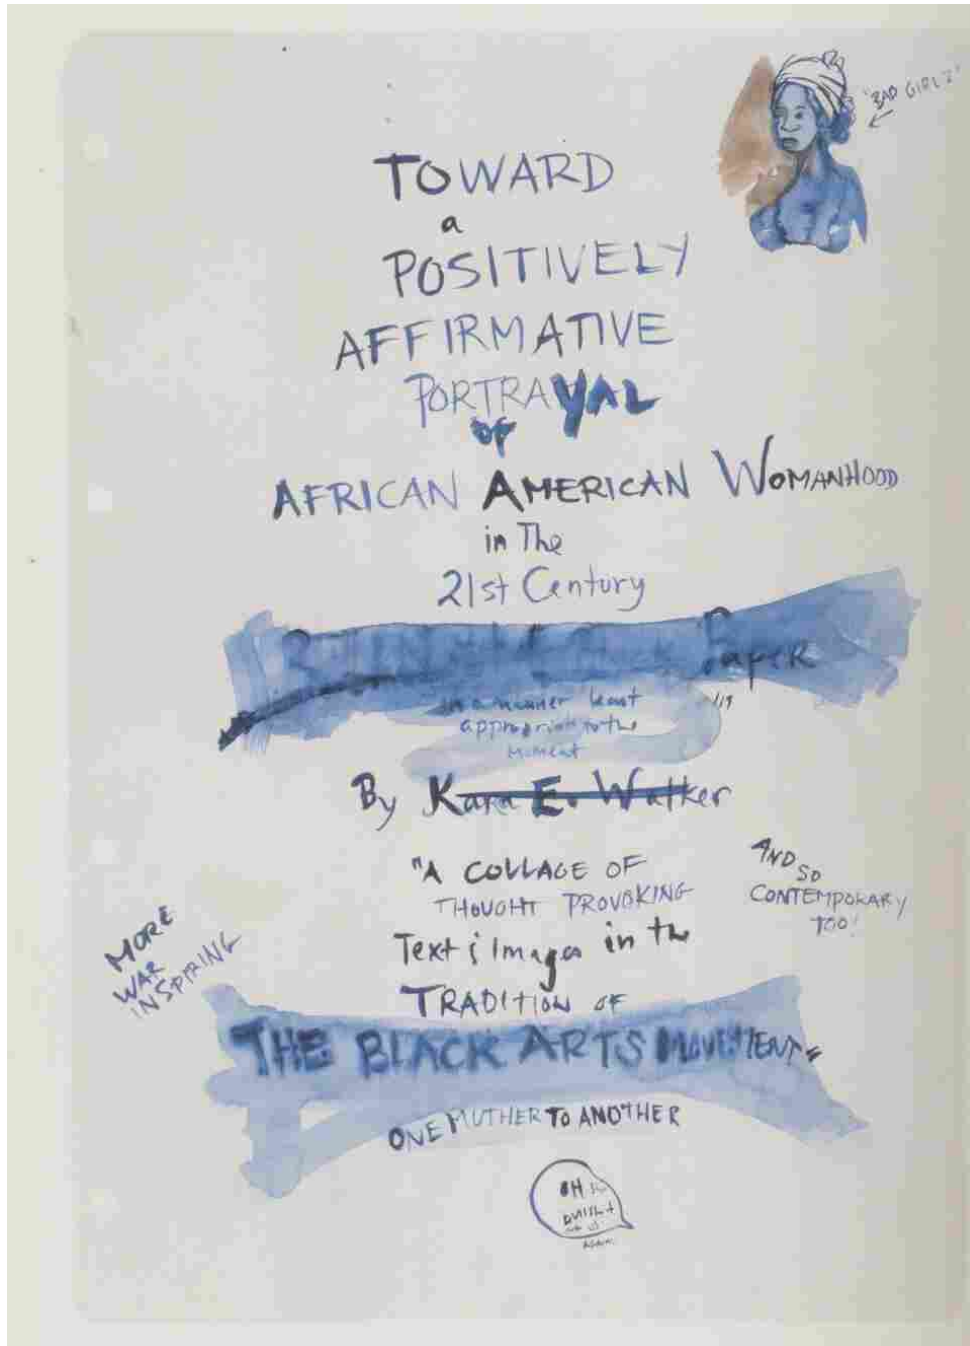 "BAD GIRLZ"
TOWARD
a
POSITIVELY
AFFIRMATIVE
PORTRAYAL
OF
AFRICAN AMERICAN WOMANHOOD
in The
21st Century
Paper
in a manner least
appropriate to the
moment
By Kara E. Walker
"A COLLAGE OF
THOUGHT PROVOKING
Text & Images in the
TRADITION OF
THE BLACK ARTS MOVEMENT
AND
SO
CONTEMPORARY
TOO!
MORE
WAR
INSPIRING
ONE MUTHER TO ANOTHER
OH